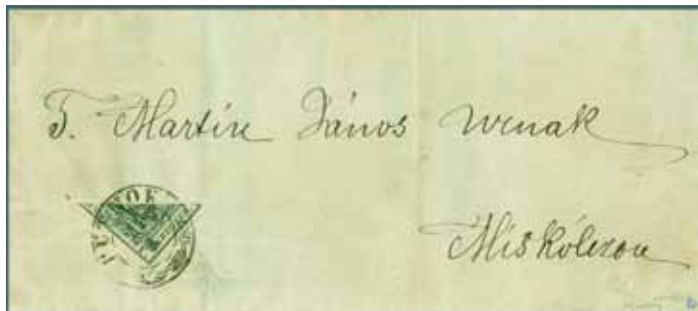 T. Martin János urnak
Miskólczon